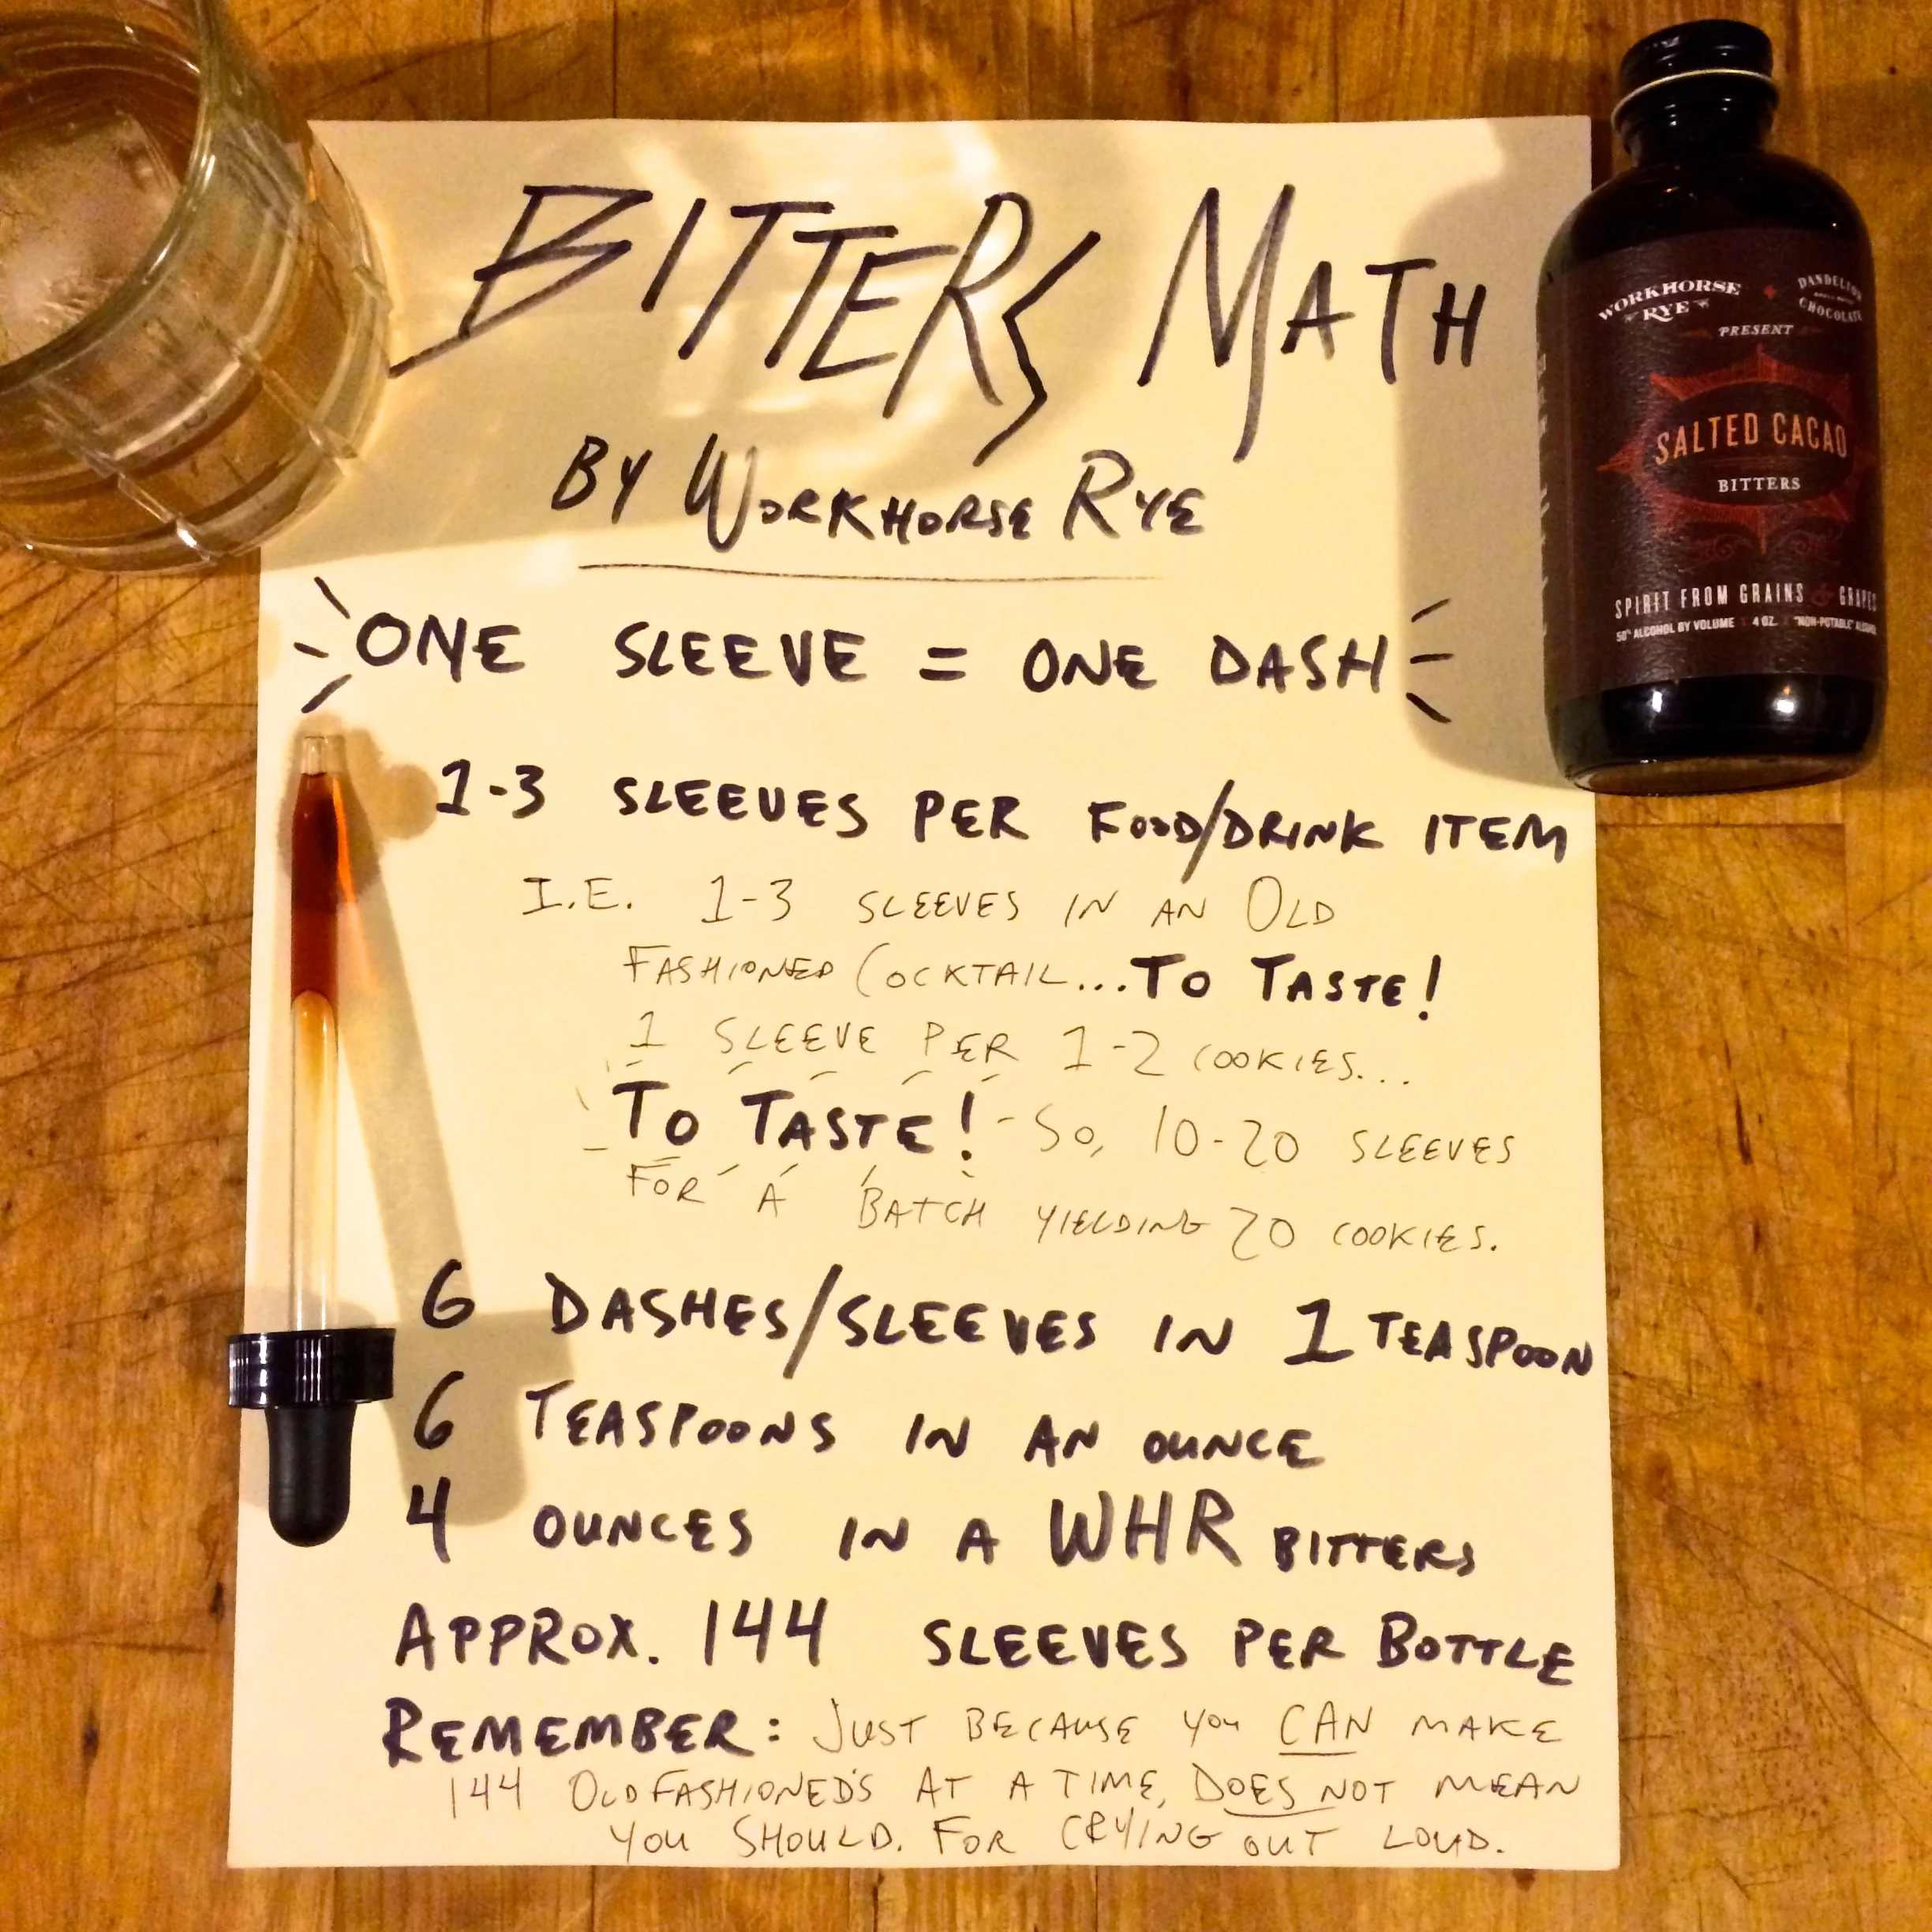 BITTERS MATH
BY WORKHORSE RYE
ONE SLEEVE = ONE DASH
1-3 SLEEVES PER FOOD/DRINK ITEM
I.E. 1-3 SLEEVES IN AN OLD
FASHIONED COCKTAIL...TO TASTE!
1 SLEEVE PER 1-2 COOKIES...
TO TASTE! - SO, 10-20 SLEEVES
FOR A BATCH YIELDING 20 COOKIES.
6 DASHES/SLEEVES IN 1 TEASPOON
6 TEASPOONS IN AN OUNCE
4 OUNCES IN A WHR BITTERS
APPROX. 144 SLEEVES PER BOTTLE
REMEMBER: JUST BECAUSE YOU CAN MAKE
144 OLD FASHIONED'S AT A TIME, DOES NOT MEAN
YOU SHOULD. FOR CRYING OUT LOUD.
WORKHORSE RYE + DANDELION
CHOCOLATE
PRESENT
SALTED CACAO
BITTERS
SPIRIT FROM GRAINS & GRAPES
50% ALCOHOL BY VOLUME 4 OZ. "NON-POTABLE"